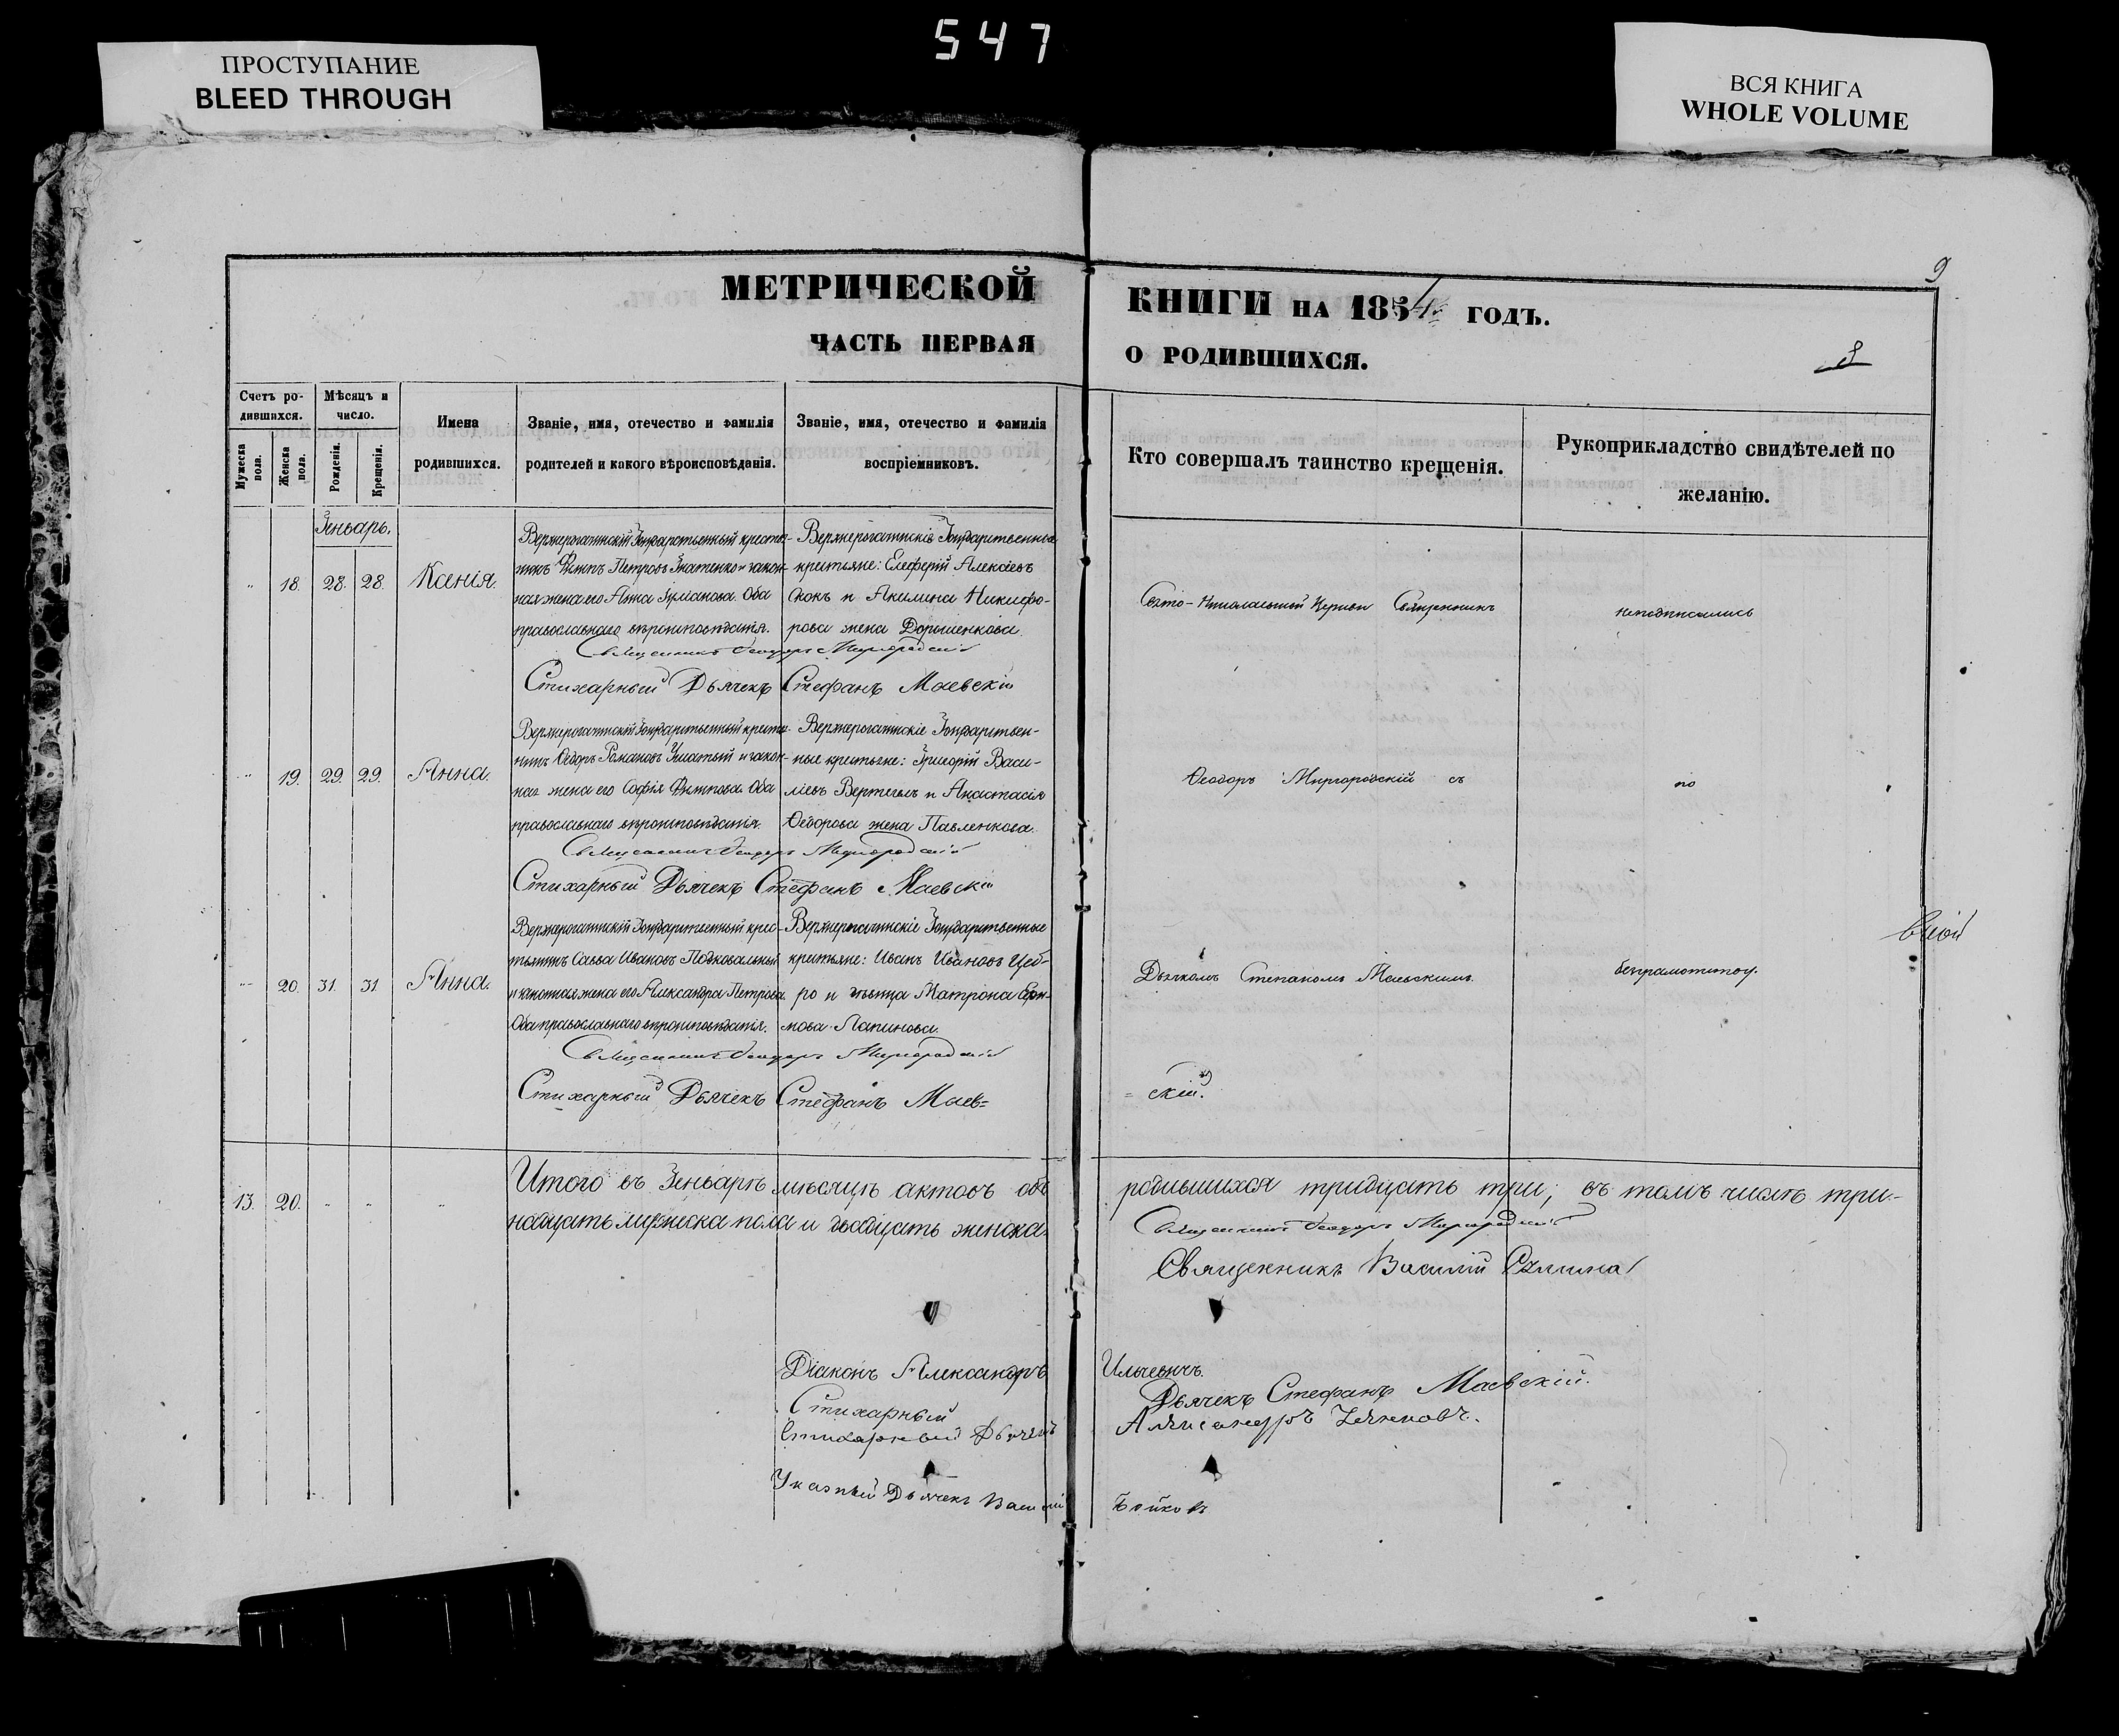 547
ПРОСТУПАНИЕ
BLEED THROUGH
ВСЯ КНИГА
WHOLE VOLUME
9
МЕТРИЧЕСКОЙ КНИГИ НА 1854 ГОДЪ.
ЧАСТЬ ПЕРВАЯ О РОДИВШИХСЯ.
Счетъ ро-
дившихся.
Мужеска пола.
Женска пола.
Мѣсяцъ и
число.
Рожденія.
Крещенія.
Имена
родившихся.
Званіе, имя, отечество и фамилія
родителей и какого вѣроисповѣданія.
Званіе, имя, отечество и фамилія
воспріемниковъ.
Кто совершалъ таинство крещенія.
Рукоприкладство свидѣтелей по
желанію.
Генварь.
18. 28. 28. Ксенія.
Верхнерогачинскій Государственный крестья-
нинъ Филипъ Петровъ Игнатенко и закон-
ная жена его Анна Оба
православнаго вѣроисповѣданія.
Верхнерогачинскіе Государственные
крестьяне: Елеферій Алексѣевъ
и Акилина Никифо-
рова жена Дорошенкова.
Священникъ Ѳеодоръ Миргородскій
Стихарный Дьячекъ Стефанъ Маевскій
19. 29. 29. Анна.
Верхнерогачинскій Государственный крестья-
нинъ Ѳедоръ Романовъ и закон-
ная жена его Софія Филипова. Оба
православнаго вѣроисповѣданія.
Верхнерогачинскіе Государствен-
ные крестьяне: Григорій Васи-
ліевъ Вертегелъ и Анастасія
Ѳедорова жена Павленкова.
Священникъ Ѳеодоръ Миргородскій
Стихарный Дьячекъ Стефанъ Маевскій
20. 31. 31. Анна.
Верхнерогачинскій Государственный крес-
тьянинъ Савва Ивановъ Подковальный
и законная жена его Александра Петрова
Оба православнаго вѣроисповѣданія.
Верхнерогачинскіе Государственные
крестьяне: Иванъ Ивановъ Цеб-
ро и дѣвица Матрона
Лапинова.
Священникъ Ѳеодоръ Миргородскій
Стихарный Дьячекъ Стефанъ Маев=
= скій.
Свято-Николаевской Церкви Священникъ
Ѳеодоръ Миргородскій съ
Дьячкомъ Степаномъ Маевскимъ.
неподписались
по
безграмотству.
13. 20.
Итого въ Генварѣ мѣсяцѣ актовъ объ родившихся тридцать три; въ томъ числѣ три-
надцать мужеска пола и двадцать женска.
Священникъ Ѳеодоръ Миргородскій
Священникъ Василій
Діаконъ Александръ Ильчевичъ.
Стихарный Дьячекъ Стефанъ Маевскій.
Стихарный Дьячекъ Александръ
Указный Дьячекъ Василій Бойковъ